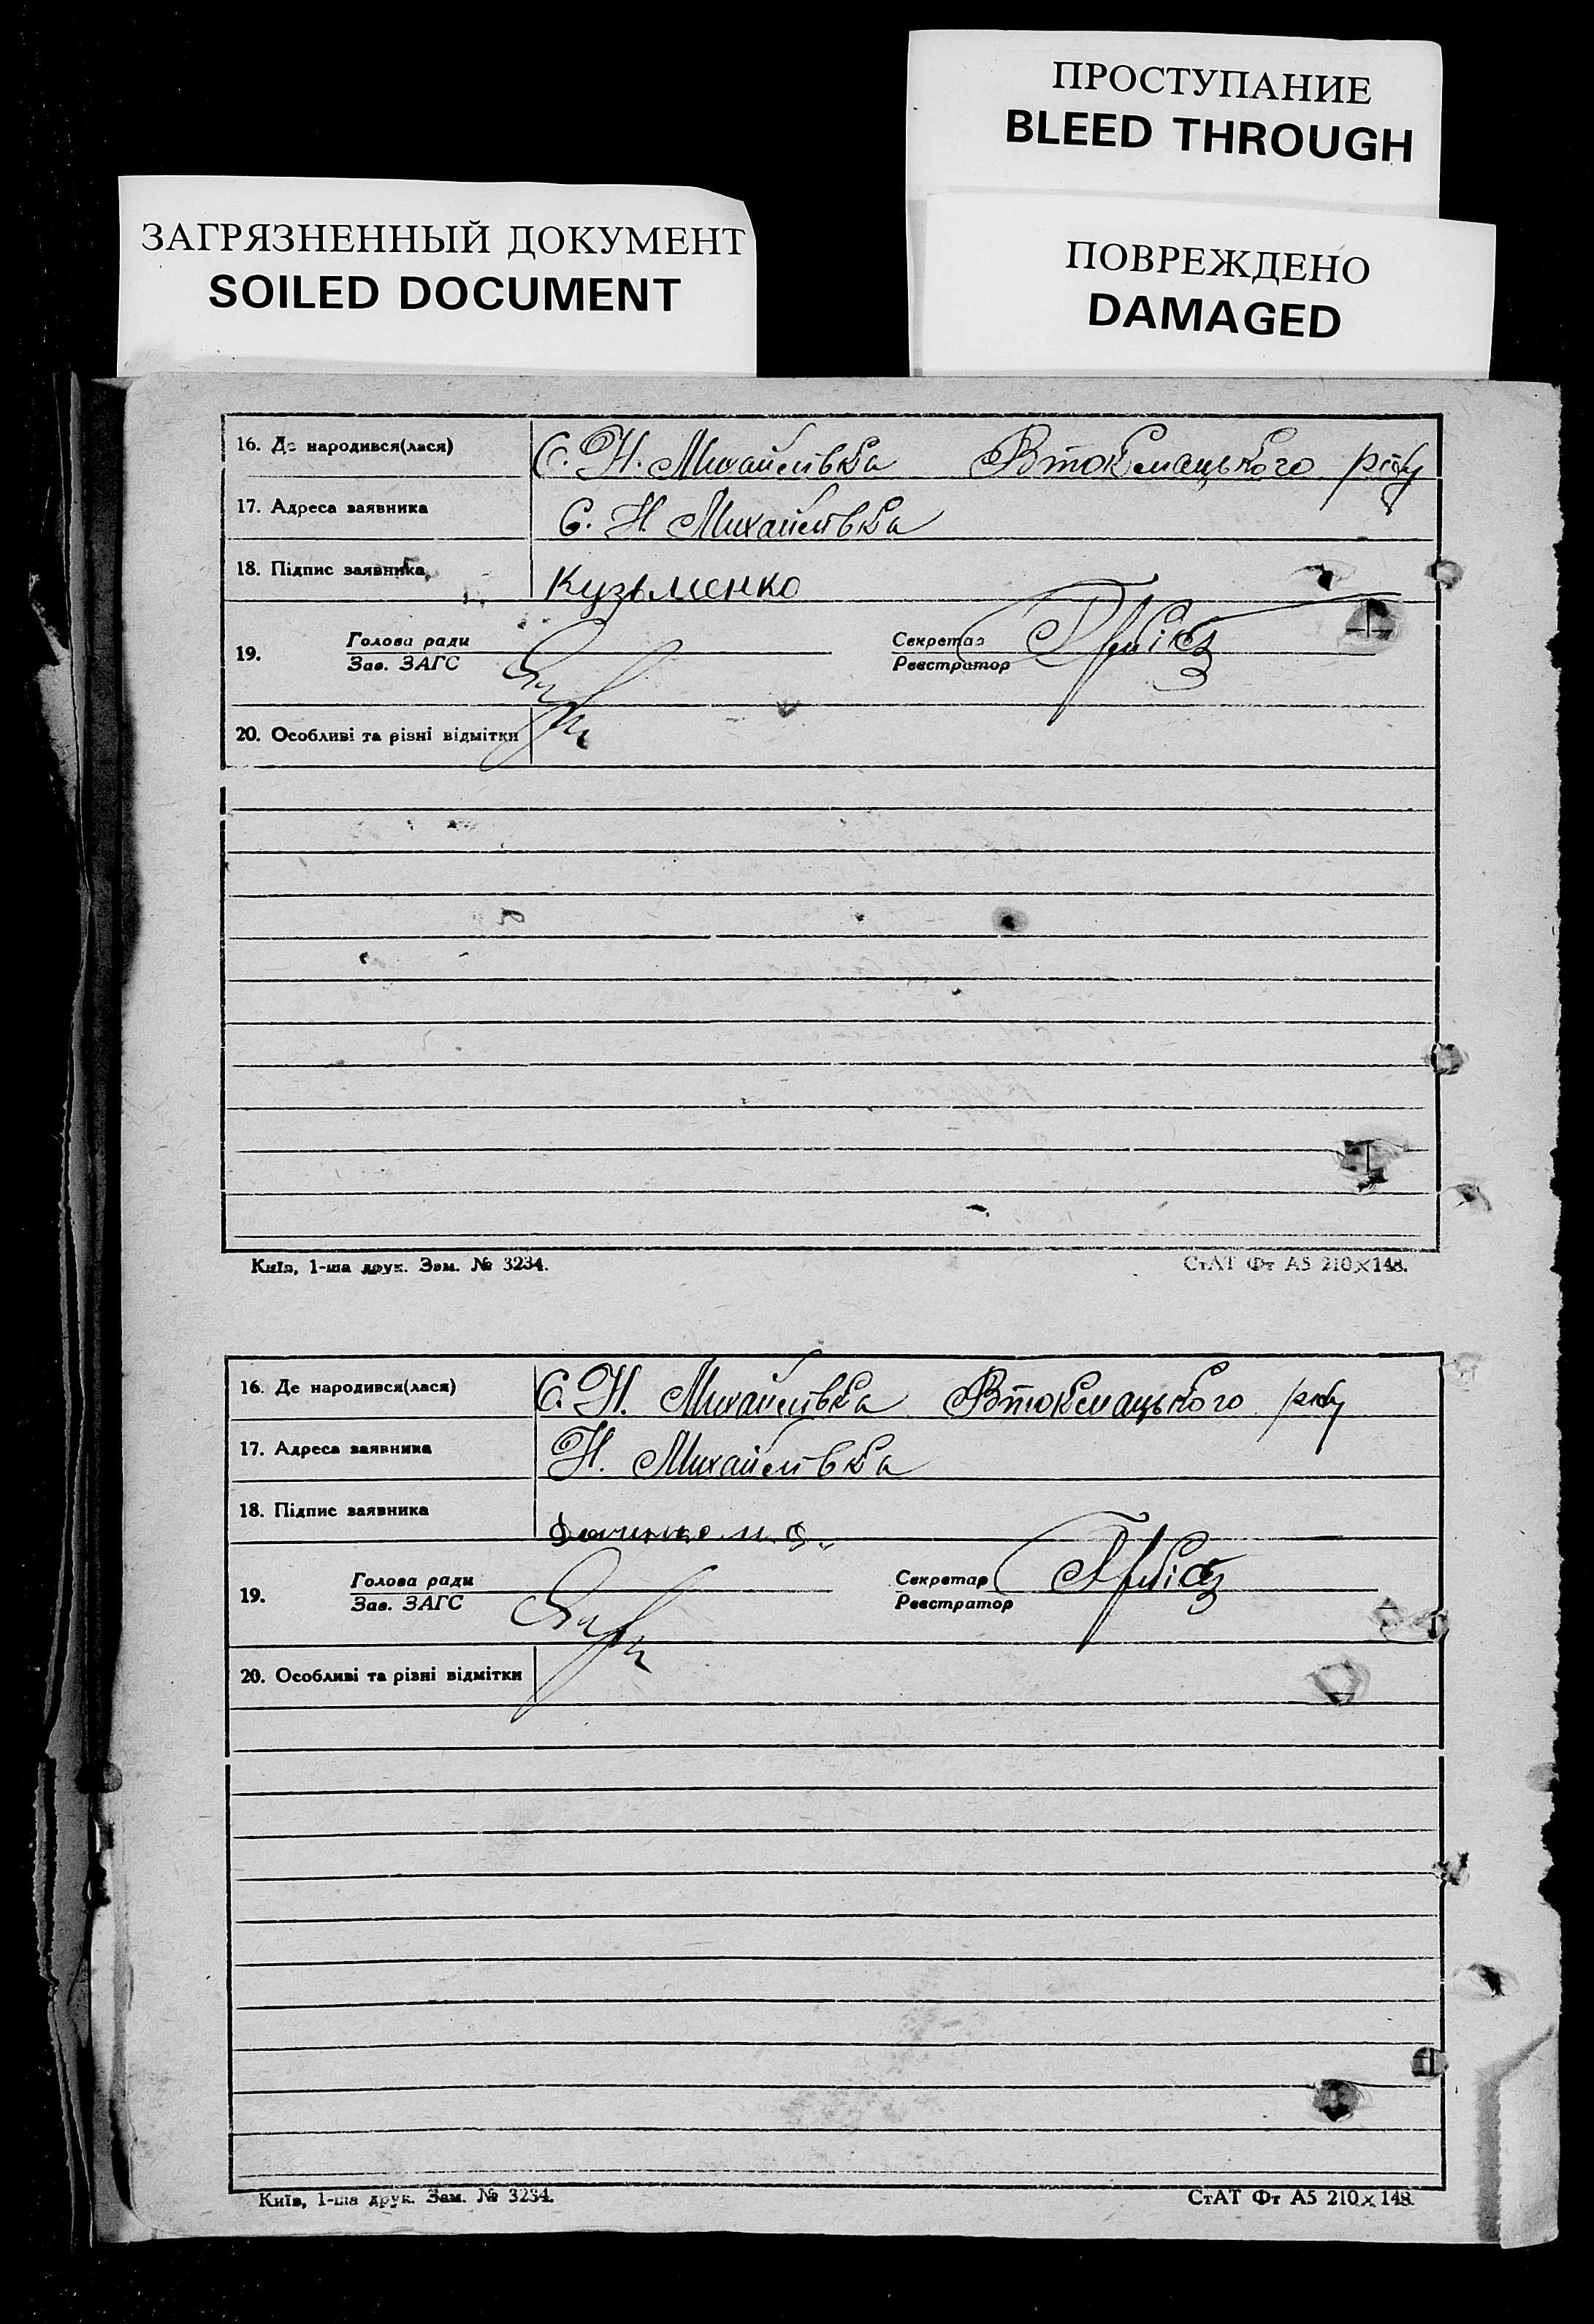 ПРОСТУПАНИЕ
BLEED THROUGH
ЗАГРЯЗНЕННЫЙ ДОКУМЕНТ
SOILED DOCUMENT
ПОВРЕЖДЕНО
DAMAGED
16. Де народився(лася) С. Н. Михайлівка Втокмацького р-ну
17. Адреса заявника С. Н Михайлівка
18. Підпис заявника Кузьменко
19. Голова ради Секретар
Зав. ЗАГС Реєстратор
20. Особливі та різні відмітки
Київ, 1-ша друк. Зам. № 3234. СтАТ Фт А5 210×148.
16. Де народився(лася) С. Н. Михайлівка Втокмацького р-ну
17. Адреса заявника Н. Михайлівка
18. Підпис заявника
19. Голова ради Секретар
Зав. ЗАГС Реєстратор
20. Особливі та різні відмітки
Київ, 1-ша друк. Зам. № 3234. СтАТ Фт А5 210×148.